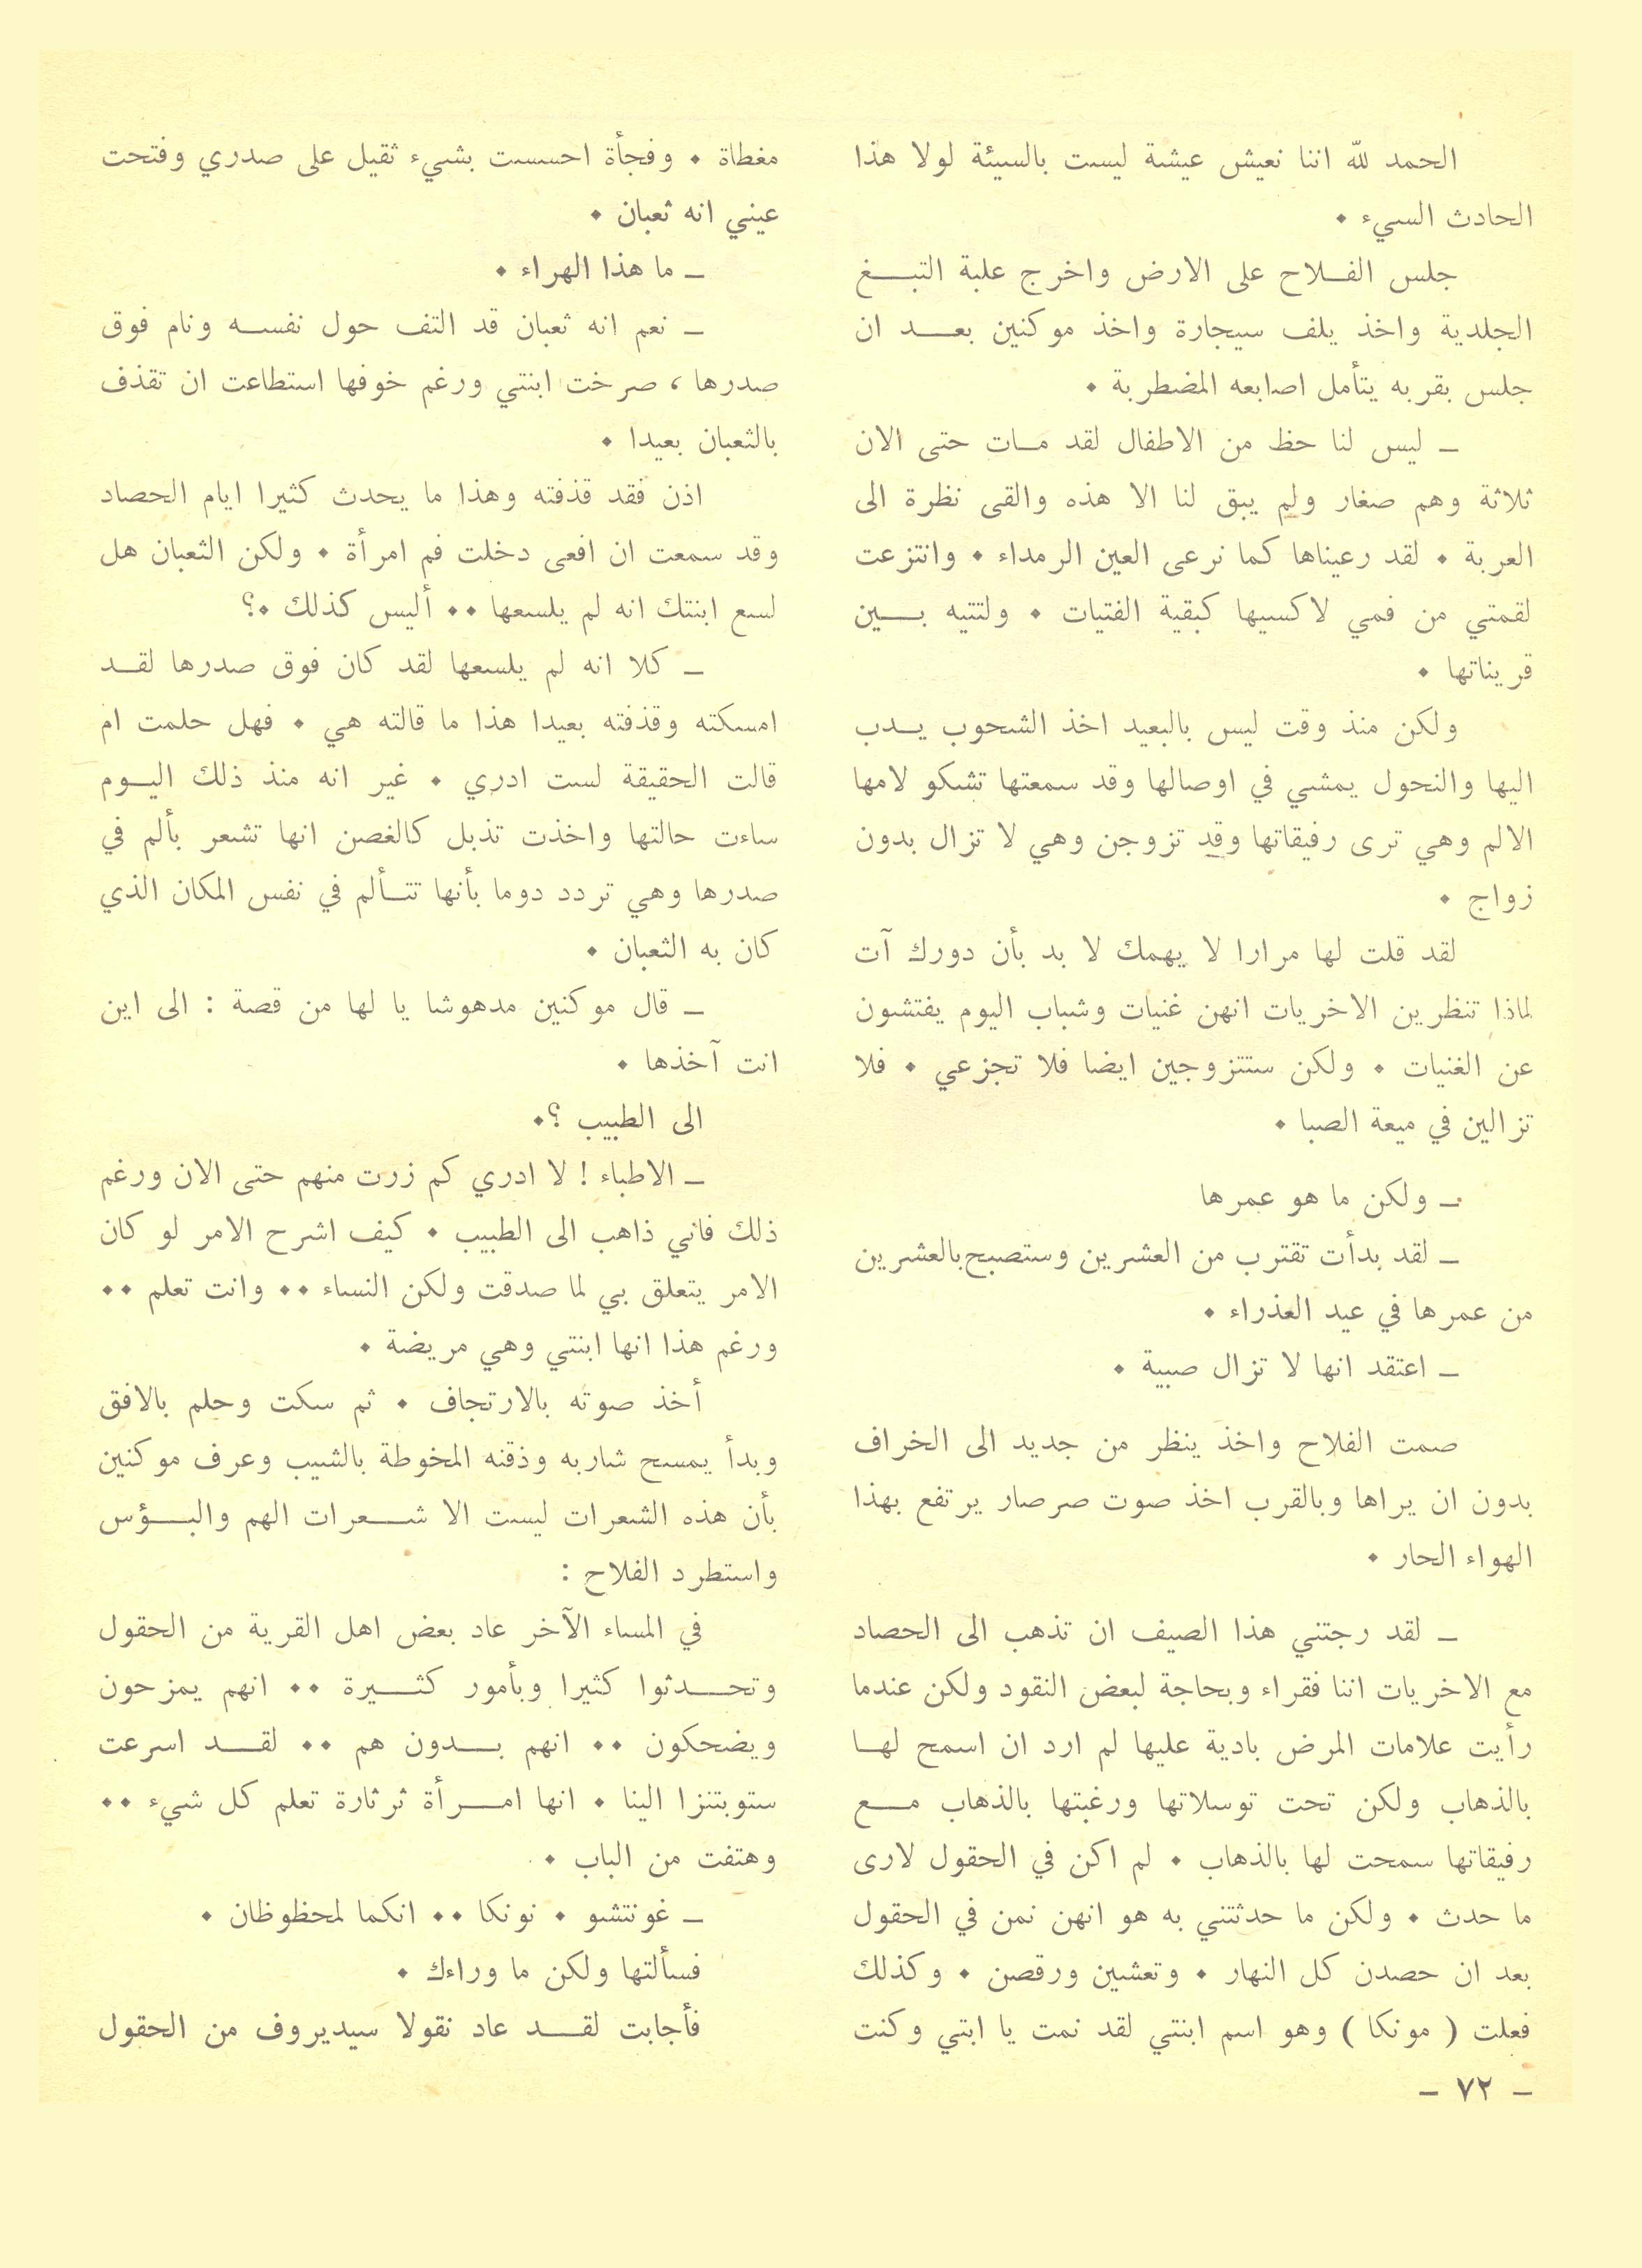 الحمد لله اننا نعيش عيشة ليست بالسيئة لولا هذا
الحادث السيء ٠
جلس الفلاح على الارض واخرج علبة التبغ
الجلدية واخذ يلف سيجارة واخذ موكنين بعد ان
جلس بقربه يتأمل اصابعه المضطربة ٠
ـ ليس لنا حظ من الاطفال لقد مات حتى الان
ثلاثة وهم صغار ولم يبق لنا الا هذه والقى نظرة الى
العربة ٠ لقد رعيناها كما نرعى العين الرمداء ٠ وانتزعت
لقمتي من فمي لاكسيها كبقية الفتيات ٠ ولتتيه بين
قريناتها ٠
ولكن منذ وقت ليس بالبعيد اخذ الشحوب يدب
اليها والنحول يمشي في اوصالها وقد سمعتها تشكو لامها
الالم وهي ترى رفيقاتها وقد تزوجن وهي لا تزال بدون
زواج ٠
لقد قلت لها مرارا لا يهمك لا بد بأن دورك آت
لماذا تنظرين الاخريات انهن غنيات وشباب اليوم يفتشون
عن الغنيات ٠ ولكن ستتزوجين ايضا فلا تجزعي ٠ فلا
تزالين في ميعة الصبا ٠
ـ ولكن ما هو عمرها
ـ لقد بدأت تقترب من العشرين وستصبح بالعشرين
من عمرها في عيد العذراء ٠
ـ اعتقد انها لا تزال صبية ٠
صمت الفلاح واخذ ينظر من جديد الى الخراف
بدون ان يراها وبالقرب اخذ صوت صرصار يرتفع بهذا
الهواء الحار ٠
ـ لقد رجتني هذا الصيف ان تذهب الى الحصاد
مع الاخريات اننا فقراء وبحاجة لبعض النقود ولكن عندما
رأيت علامات المرض بادية عليها لم ارد ان اسمح لها
بالذهاب ولكن تحت توسلاتها ورغبتها بالذهاب مع
رفيقاتها سمحت لها بالذهاب ٠ لم اكن في الحقول لارى
ما حدث ٠ ولكن ما حدثتني به هو انهن نمن في الحقول
بعد ان حصدن كل النهار ٠ وتعشين ورقصن ٠ وكذلك
فعلت ( مونكا ) وهو اسم ابنتي لقد نمت يا ابتي وكنت
ـ ٧٢ ـ
مغطاة ٠ وفجأة احسست بشيء ثقيل على صدري وفتحت
عيني انه ثعبان ٠
ـ ما هذا الهراء ٠
ـ نعم انه ثعبان قد التف حول نفسه ونام فوق
صدرها ، صرخت ابنتي ورغم خوفها استطاعت ان تقذف
بالثعبان بعيدا ٠
اذن فقد قذفته وهذا ما يحدث كثيرا ايام الحصاد
وقد سمعت ان افعى دخلت فم امرأة ٠ ولكن الثعبان هل
لسع ابنتك انه لم يلسعها ٠٠ أليس كذلك ٠؟
ـ كلا انه لم يلسعها لقد كان فوق صدرها لقد
امسكته وقذفته بعيدا هذا ما قالته هي ٠ فهل حلمت ام
قالت الحقيقة لست ادري ٠ غير انه منذ ذلك اليوم
ساءت حالتها واخذت تذبل كالغصن انها تشعر بألم في
صدرها وهي تردد دوما بأنها تتألم في نفس المكان الذي
كان به الثعبان ٠
ـ قال موكنين مدهوشا يا لها من قصة : الى اين
انت آخذها ٠
الى الطبيب ؟٠
ـ الاطباء ! لا ادري كم زرت منهم حتى الان ورغم
ذلك فاني ذاهب الى الطبيب ٠ كيف اشرح الامر لو كان
الامر يتعلق بي لما صدقت ولكن النساء ٠٠ وانت تعلم ٠٠
ورغم هذا انها ابنتي وهي مريضة ٠
أخذ صوته بالارتجاف ٠ ثم سكت وحلم بالافق
وبدأ يمسح شاربه وذقنه المخوطة بالشيب وعرف موكنين
بأن هذه الشعرات ليست الا شعرات الهم والبؤس
واستطرد الفلاح :
في المساء الآخر عاد بعض اهل القرية من الحقول
وتحدثوا كثيرا وبأمور كثيرة ٠٠ انهم يمزحون
ويضحكون ٠٠ انهم بدون هم ٠٠ لقد اسرعت
ستوبتنزا الينا ٠ انها امرأة ثرثارة تعلم كل شيء ٠٠
وهتفت من الباب ٠
ـ غونتشو ٠ نونكا ٠٠ انكما لمحظوظان ٠
فسألتها ولكن ما وراءك ٠
فأجابت لقد عاد نقولا سيديروف من الحقول